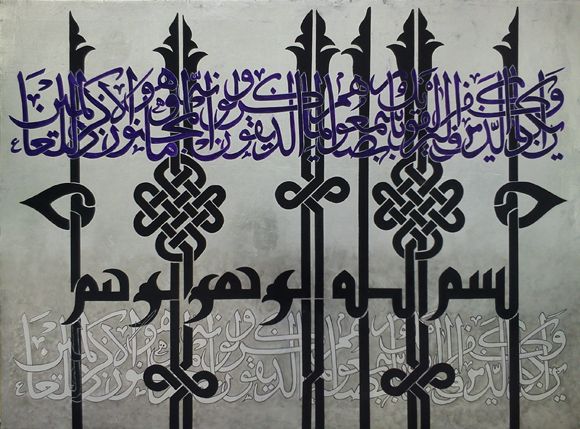 وإن يكاد الذين كفروا ليزلقونك بأبصارهم لما سمعوا الذكر ويقولون إنه لمجنون وما هو إلا ذكر للعالمين
بسم الله الرحمن الرحيم
وإن يكاد الذين كفروا ليزلقونك بأبصارهم لما سمعوا الذكر ويقولون إنه لمجنون وما هو إلا ذكر للعالمين